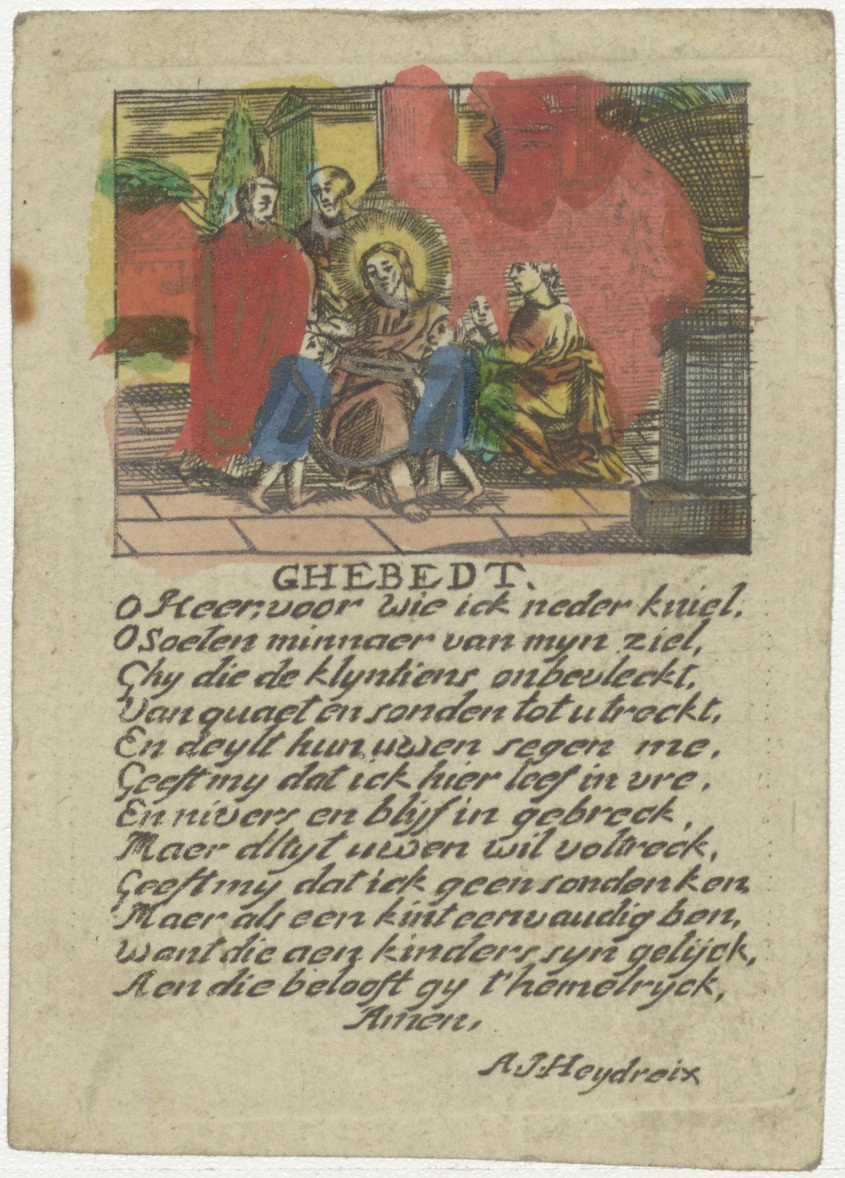 GHEBEDT.
O Heer, voor wie ick neder kniel,
O Soeten minnaer van myn ziel,
Ghy die de klyntiens onbevleckt,
Van quaet en sonden tot u treckt,
En deylt hun uwen segen me,
Geeft my dat ick hier leef in vre,
En nivers en blijf in gebreck,
Maer altyt uwen wil voltreck,
Geeft my dat ick geen sonden ken
Maer als een kint eenvaudig ben,
Want die aen kinders syn gelijck,
Aen die belooft gy t'hemelryck,
Amen,
A.J. Heydreix